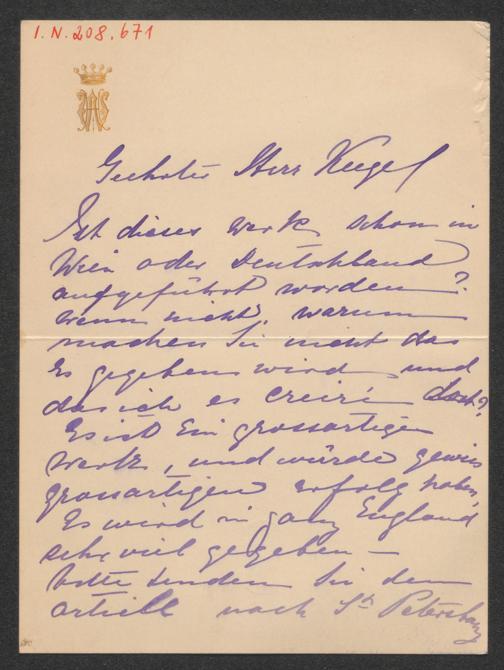 I.N. 208.671
Geehrter Herr Kugel
Ist dieses werk schon in
Wien oder Deutschland
aufgeführt worden?
wenn nicht, warum
machen Sie nicht das
Es gegeben wird und
das ich es creire dort?
Es ist Ein grossartiges
werk, und würde gewiss
grossartigen erfolg haben,
Es wird in ganz England
sehr viel gegeben —
bitte senden Sie den
artikell nach St Petersburg